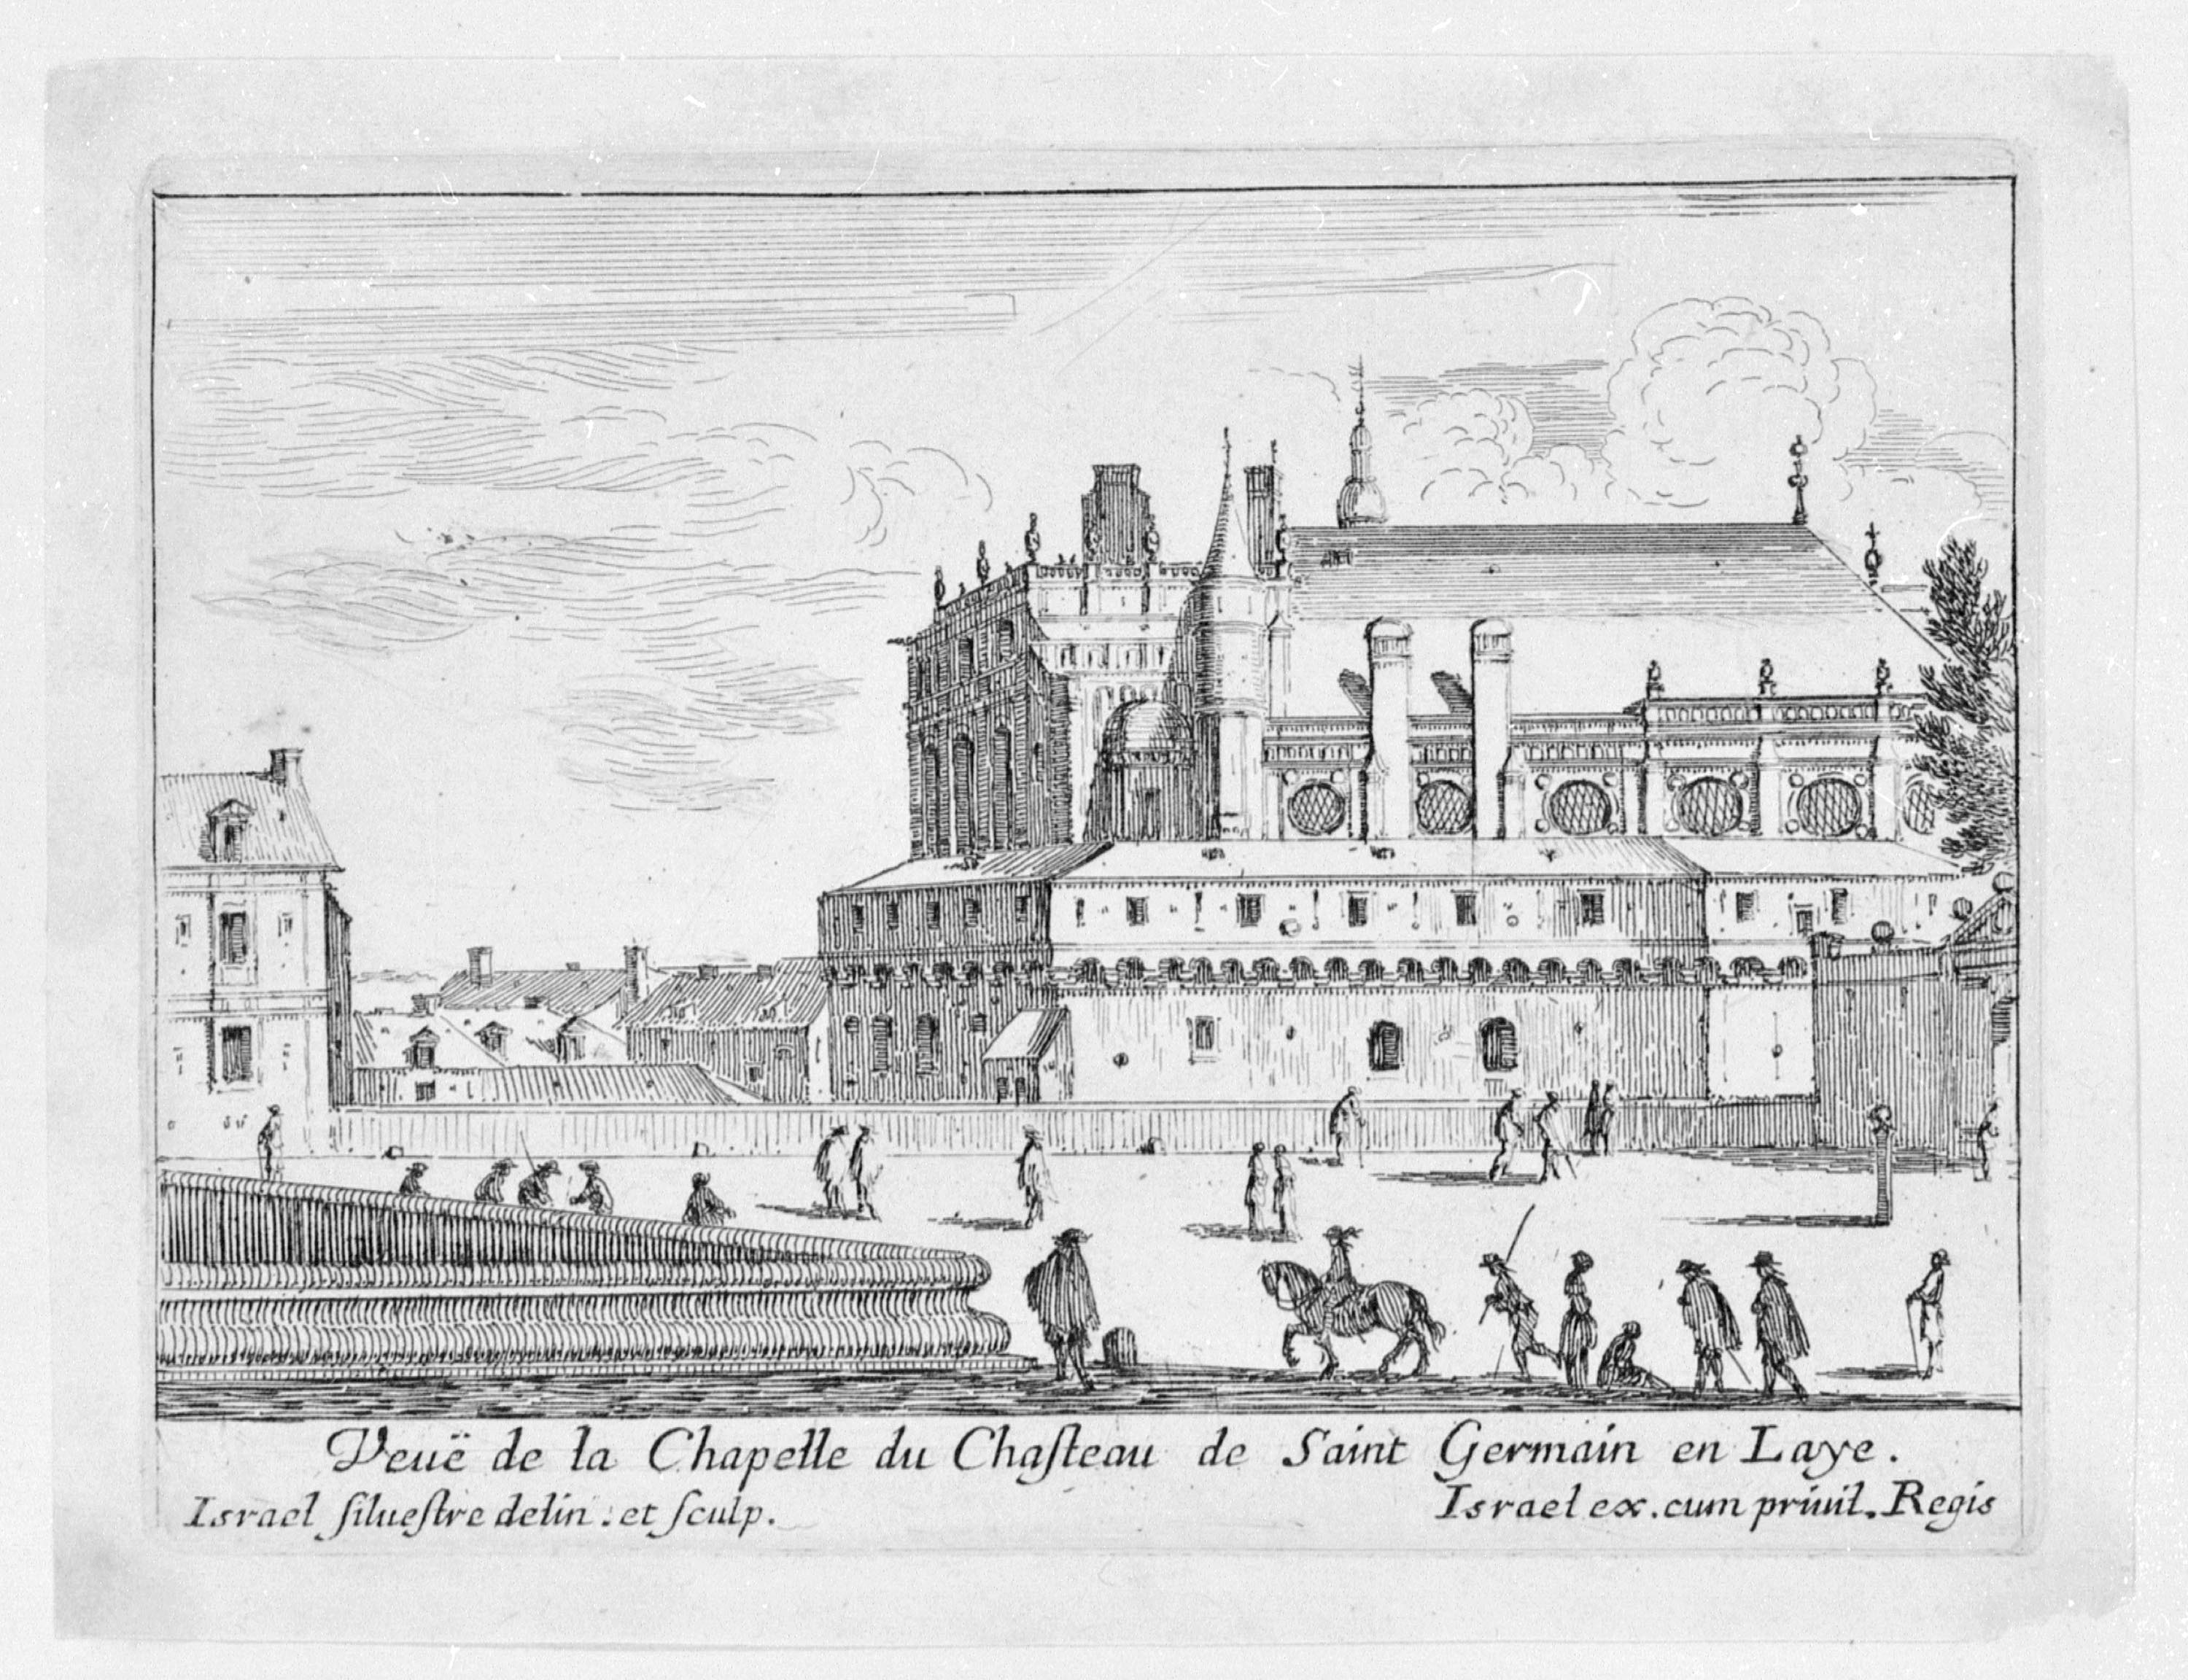 Veuë de la Chapelle du Chaſteau de Saint Germain en Laye.
Israel ſilueſtre delin : et ſculp.
Israel ex. cum priuil. Regis